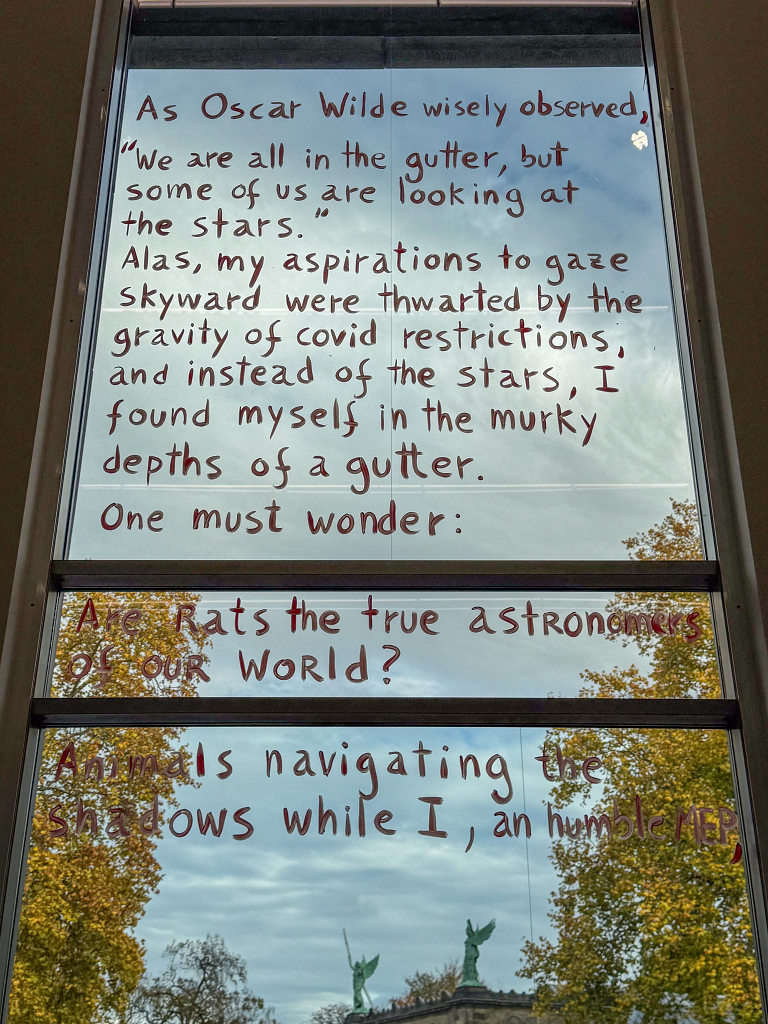 As Oscar Wilde wisely observed,
"We are all in the gutter, but
some of us are looking at
the stars."
Alas, my aspirations to gaze
skyward were thwarted by the
gravity of covid restrictions,
and instead of the stars, I
found myself in the murky
depths of a gutter.
One must wonder:
Are Rats the true astRonomers
of ouR WoRld?
Animals navigating the
shadows while I, an humble MEP,